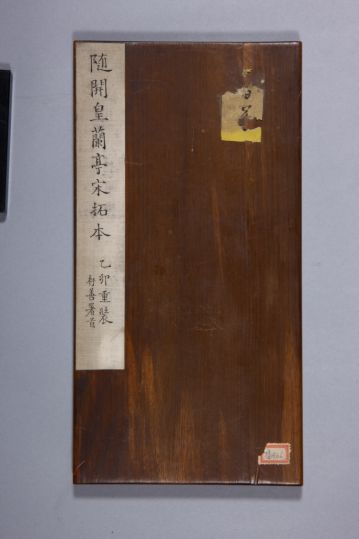 随開皇蘭亭宋拓本
乙卯重裝
存善署首